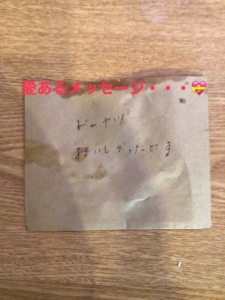 愛あるメッセージ・・・💝
ドーナツが
おいしかったです